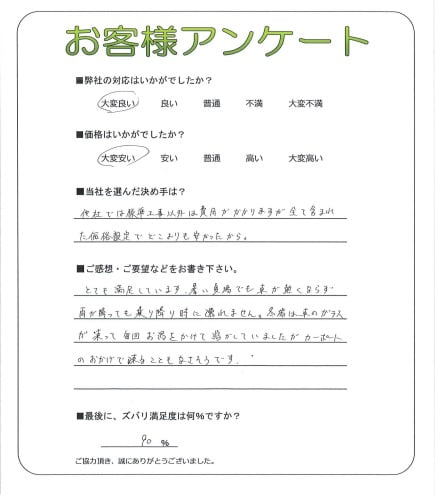 お客様アンケート
■弊社の対応はいかがでしたか？
大変良い 良い 普通 不満 大変不満
■価格はいかがでしたか？
大変安い 安い 普通 高い 大変高い
■当社を選んだ決め手は？
他社では標準工事以外は費用がかかりますが全て含まれ
た価格設定でどこよりも安かったから。
■ご感想・ご要望などをお書き下さい。
とても満足しています。暑い真夏でも車が熱くならず
雨が降っても乗り降り時に濡れません。冬場は車のガラス
が凍って毎回お湯をかけて溶かしていましたがカーポート
のおかげで凍ることもなさそうです。
■最後に、ズバリ満足度は何％ですか？
90 ％
ご協力頂き、誠にありがとうございました。